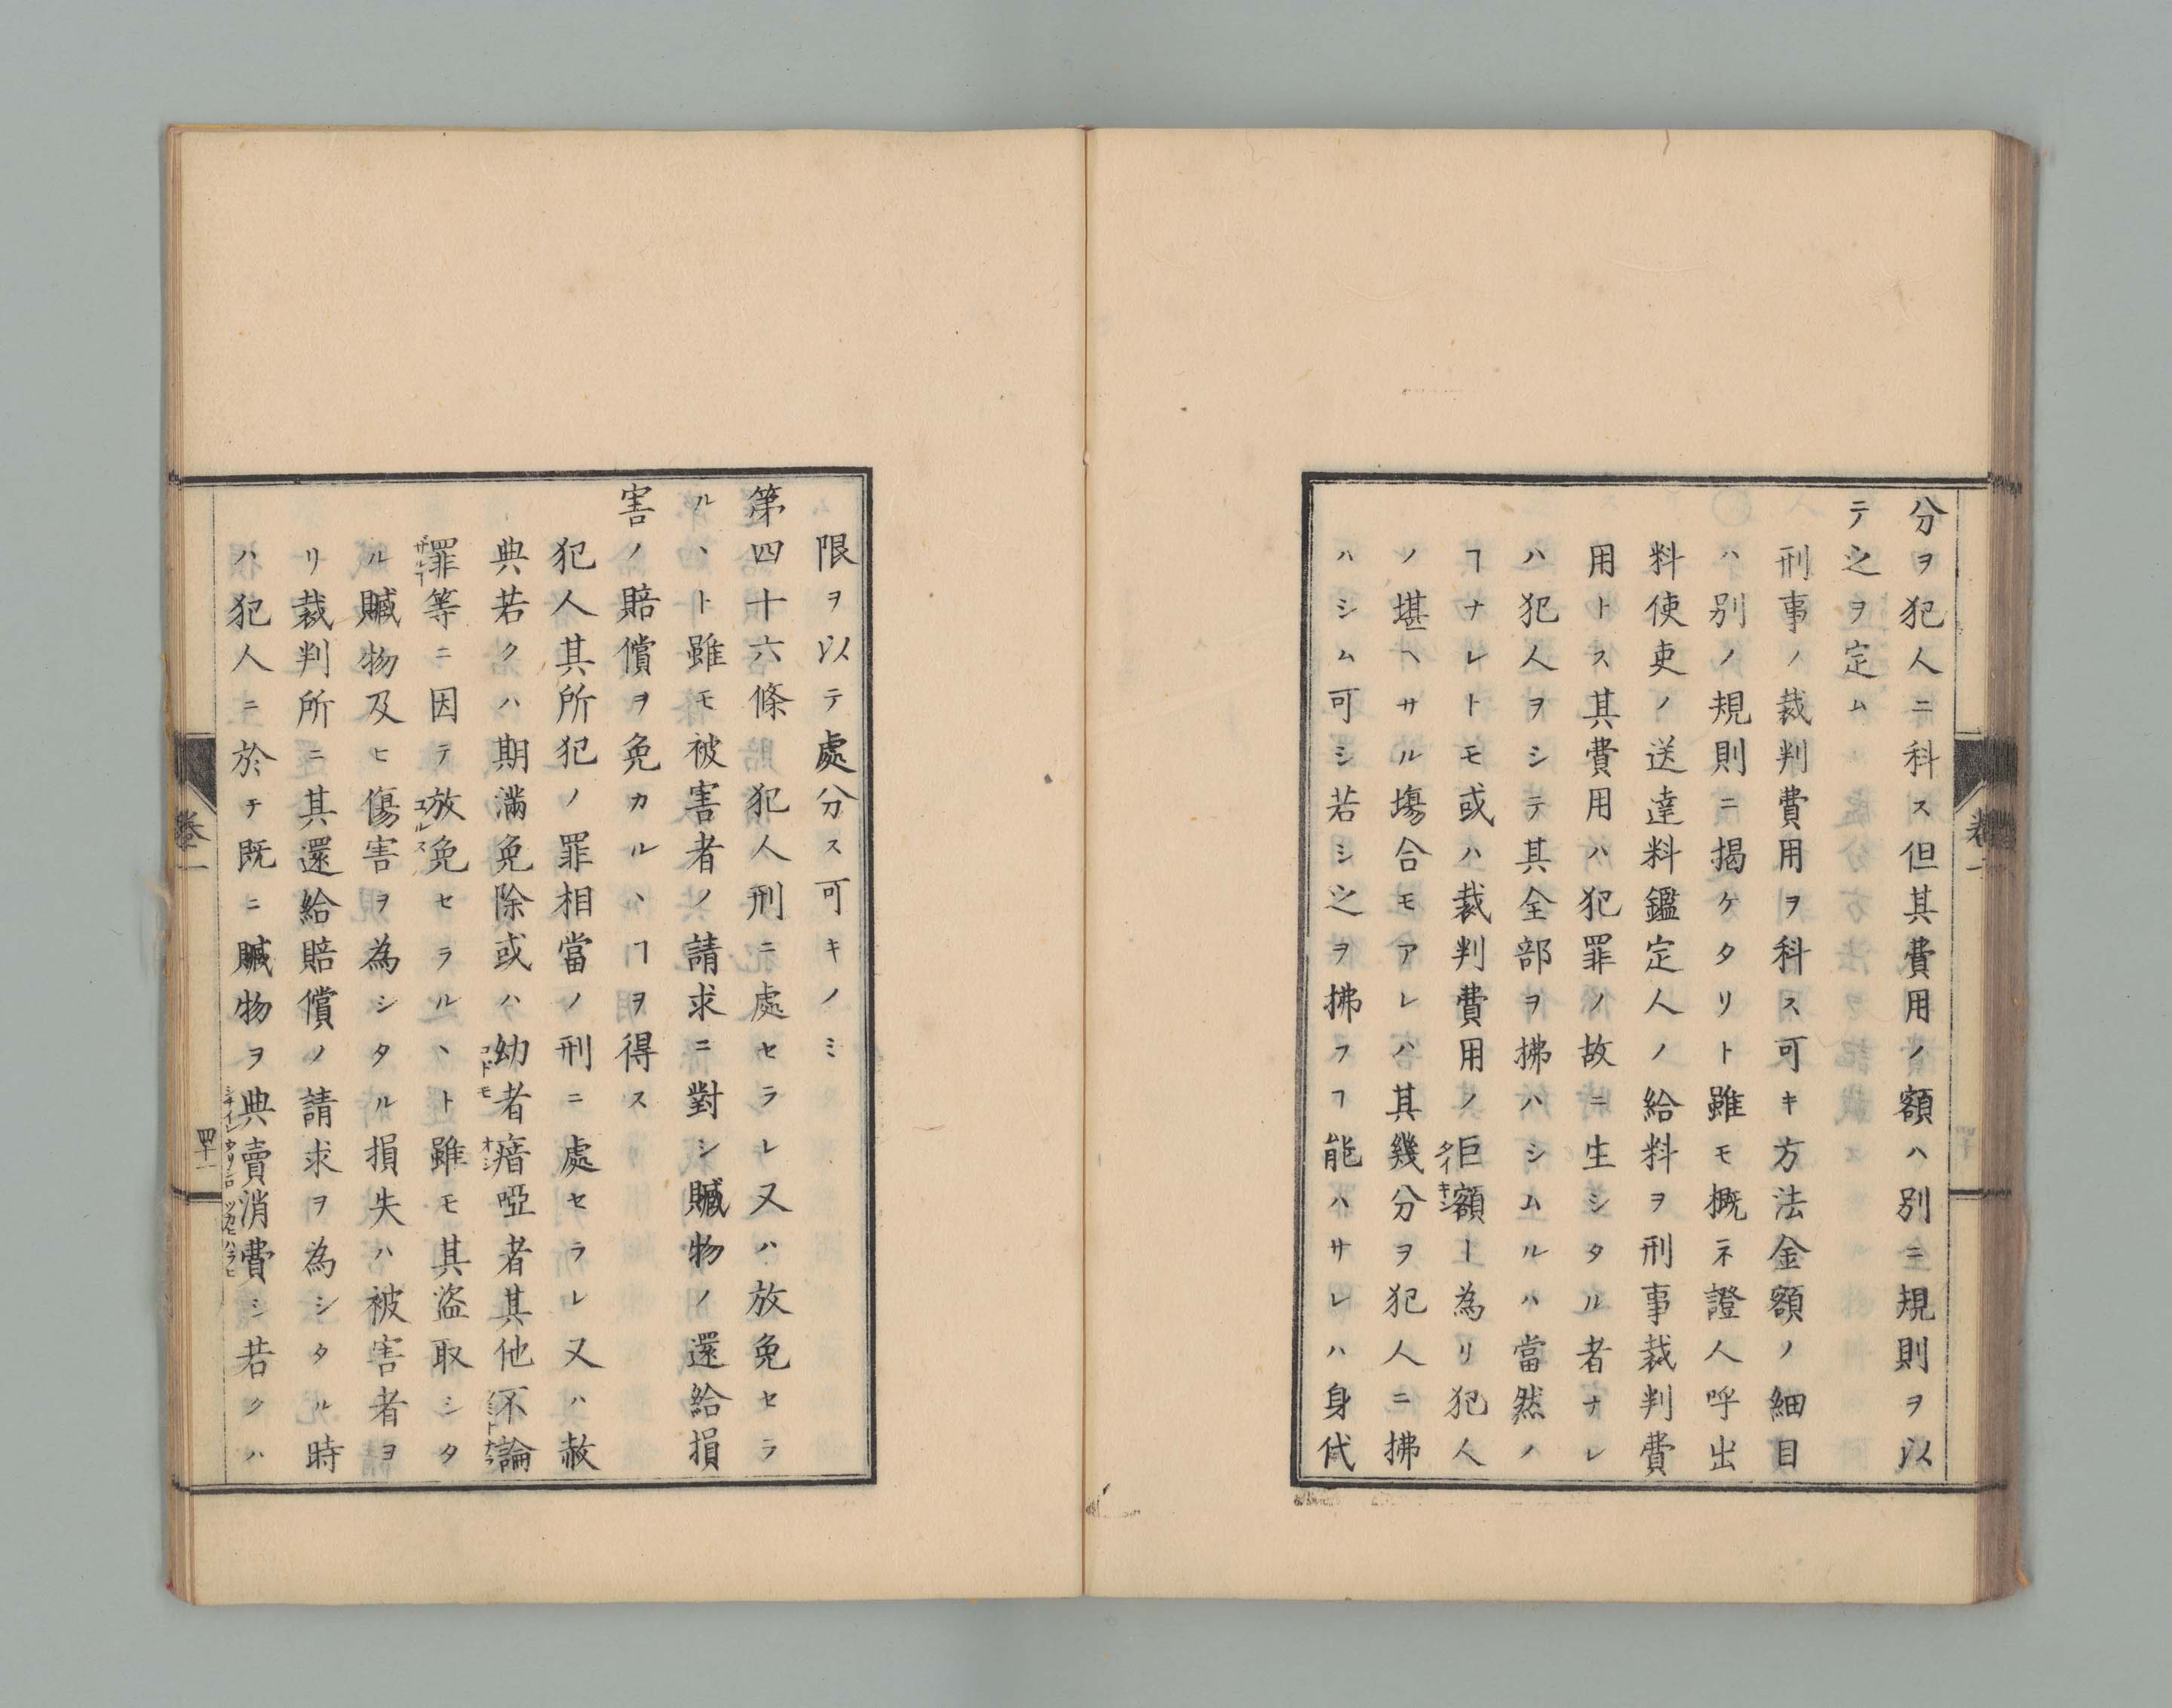 分ヲ犯人ニ科ス但其費用ノ額ハ別ニ規則ヲ以
テ之ヲ定ム
刑事ノ裁判費用ヲ科ス可キ方法金額ノ細目
ハ別ノ規則ニ揭ケタリト雖モ概ネ證人呼出
料使吏ノ送達料鑑定人ノ給料ヲ刑事裁判費
用トス其費用ハ犯罪ノ故ニ生シタル者ナレ
ハ犯人ヲシテ其全部ヲ拂ハシムルハ當然ノ
ヿナレトモ或ハ裁判費用ノ巨額ト為リ犯人
ノ堪ヘサル塲合モアレハ其幾分ヲ犯人ニ拂
ハシム可シ若シ之ヲ拂フヿ能ハサレハ身代
限ヲ以テ處分ス可キノミ
第四十六條 犯人刑ニ處セラレ又ハ放免セラ
ルヽト雖モ被害者ノ請求ニ對シ贓物ノ還給損
害ノ賠償ヲ免カルヽヿヲ得ス
犯人其所犯ノ罪相當ノ刑ニ處セラレ又ハ赦
典若クハ期滿免除或ハ幼者瘖啞者其他不論
罪等ニ因テ放免セラルヽト雖モ其盜取シタ
ル贓物及ヒ傷害ヲ為シタル損失ハ被害者ヨ
リ裁判所ニ其還給賠償ノ請求ヲ為シタル時
ハ犯人ニ於テ既ニ贓物ヲ典賣消費シ若クハ
卷一
四十一